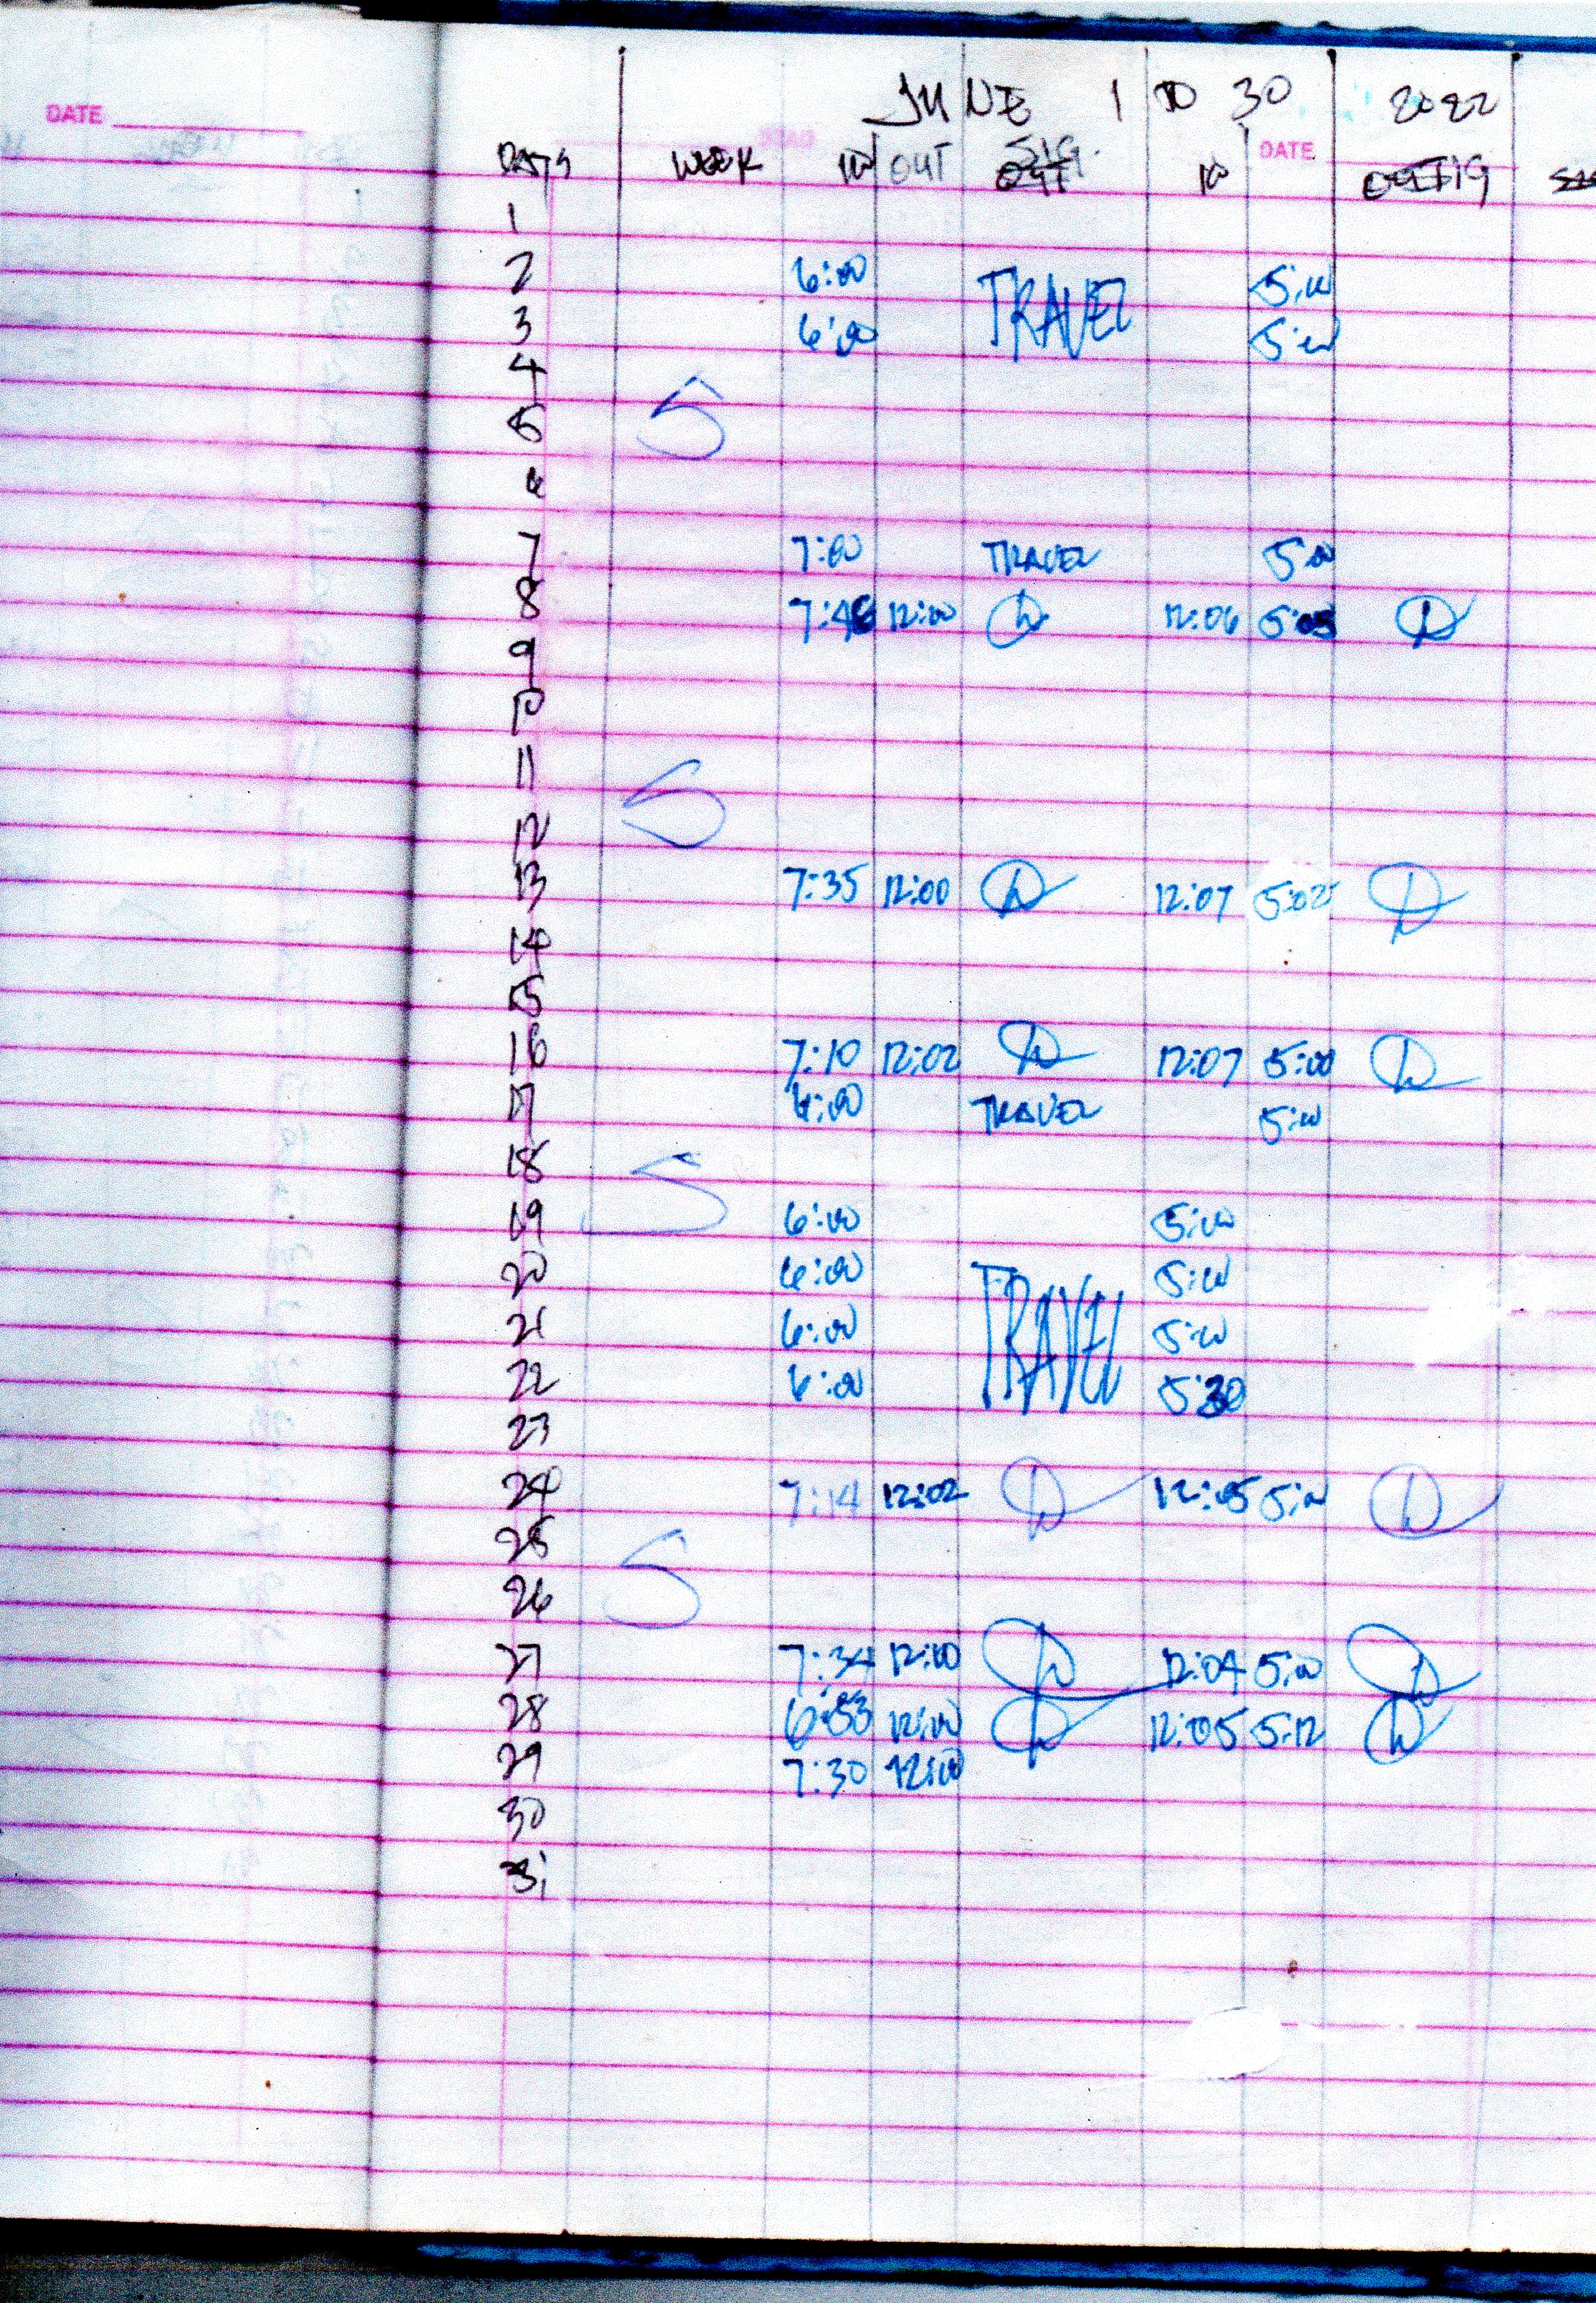 DATE
JUNE 1 TO 30 2022
DATE
DAYS WEEK IN OUT SIG. IN SIG
1
2 6:00 TRAVEL 5:00
3 6:00 5:00
4
5 S
6
7 7:00 TRAVEL 5:00
8 7:46 12:00 12:06 5:05
9
10
11
12 S
13 7:35 12:00 12:07 5:02
14
15
16 7:10 12:02 12:07 5:00
17 6:00 TRAVEL 5:00
18 S
19 6:00 5:00
20 6:00 TRAVEL 5:00
21 6:00 5:00
22 6:00 5:30
23
24 7:14 12:02 12:05 5:00
25 S
26
27 7:34 12:00 12:04 5:00
28 6:53 12:00 12:05 5:12
29 7:30 12:00
30
31